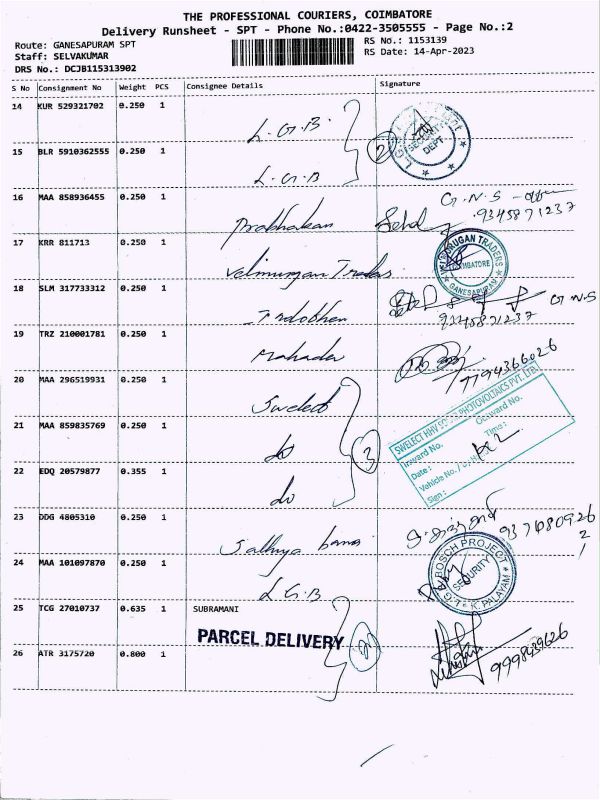 THE PROFESSIONAL COURIERS, COIMBATORE
Delivery Runsheet - SPT - Phone No.:0422-3505555 - Page No.:2
Route: GANESAPURAM SPT
RS No.: 1153139
Staff: SELVAKUMAR
RS Date: 14-Apr-2023
DRS No.: DCJB115313902
S No Consignment No Weight PCS Consignee Details Signature
14 KUR 529321702 0.250 1
L.G.B. 2
SECURITY DEPT
15 BLR 5910362555 0.250 1
L.G.B
16 MAA 858936455 0.250 1
G.N.S
9345871237
Prabhakan
17 KRR 811713 0.250 1
Velmurugan Traders
MURUGAN TRADERS
COIMBATORE
GANESAPURAM
18 SLM 317733312 0.250 1
G.N.S
9345871237
19 TRZ 210001781 0.250 1
Mahadev
7794366026
20 MAA 296519931 0.250 1
Swelect
SWELECT HHV SOLAR PHOTOVOLTAICS PVT. LTD.
Inward No. Outward No.
Date: Time:
Vehicle No.
Sign:
21 MAA 859835769 0.250 1
do 3
22 EDQ 20579877 0.355 1
do
23 DDG 4805310 0.250 1
Sathya
24 MAA 101097870 0.250 1
L G B
BOSCH PROJECT
SECURITY
S.T.K. PALAYAM
25 TCG 27010737 0.635 1 SUBRAMANI
PARCEL DELIVERY 2
26 ATR 3175720 0.800 1